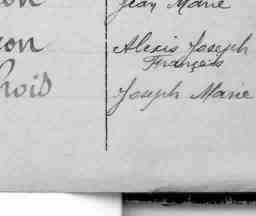 Jean Marie
Alexis Joseph
François
Joseph Marie